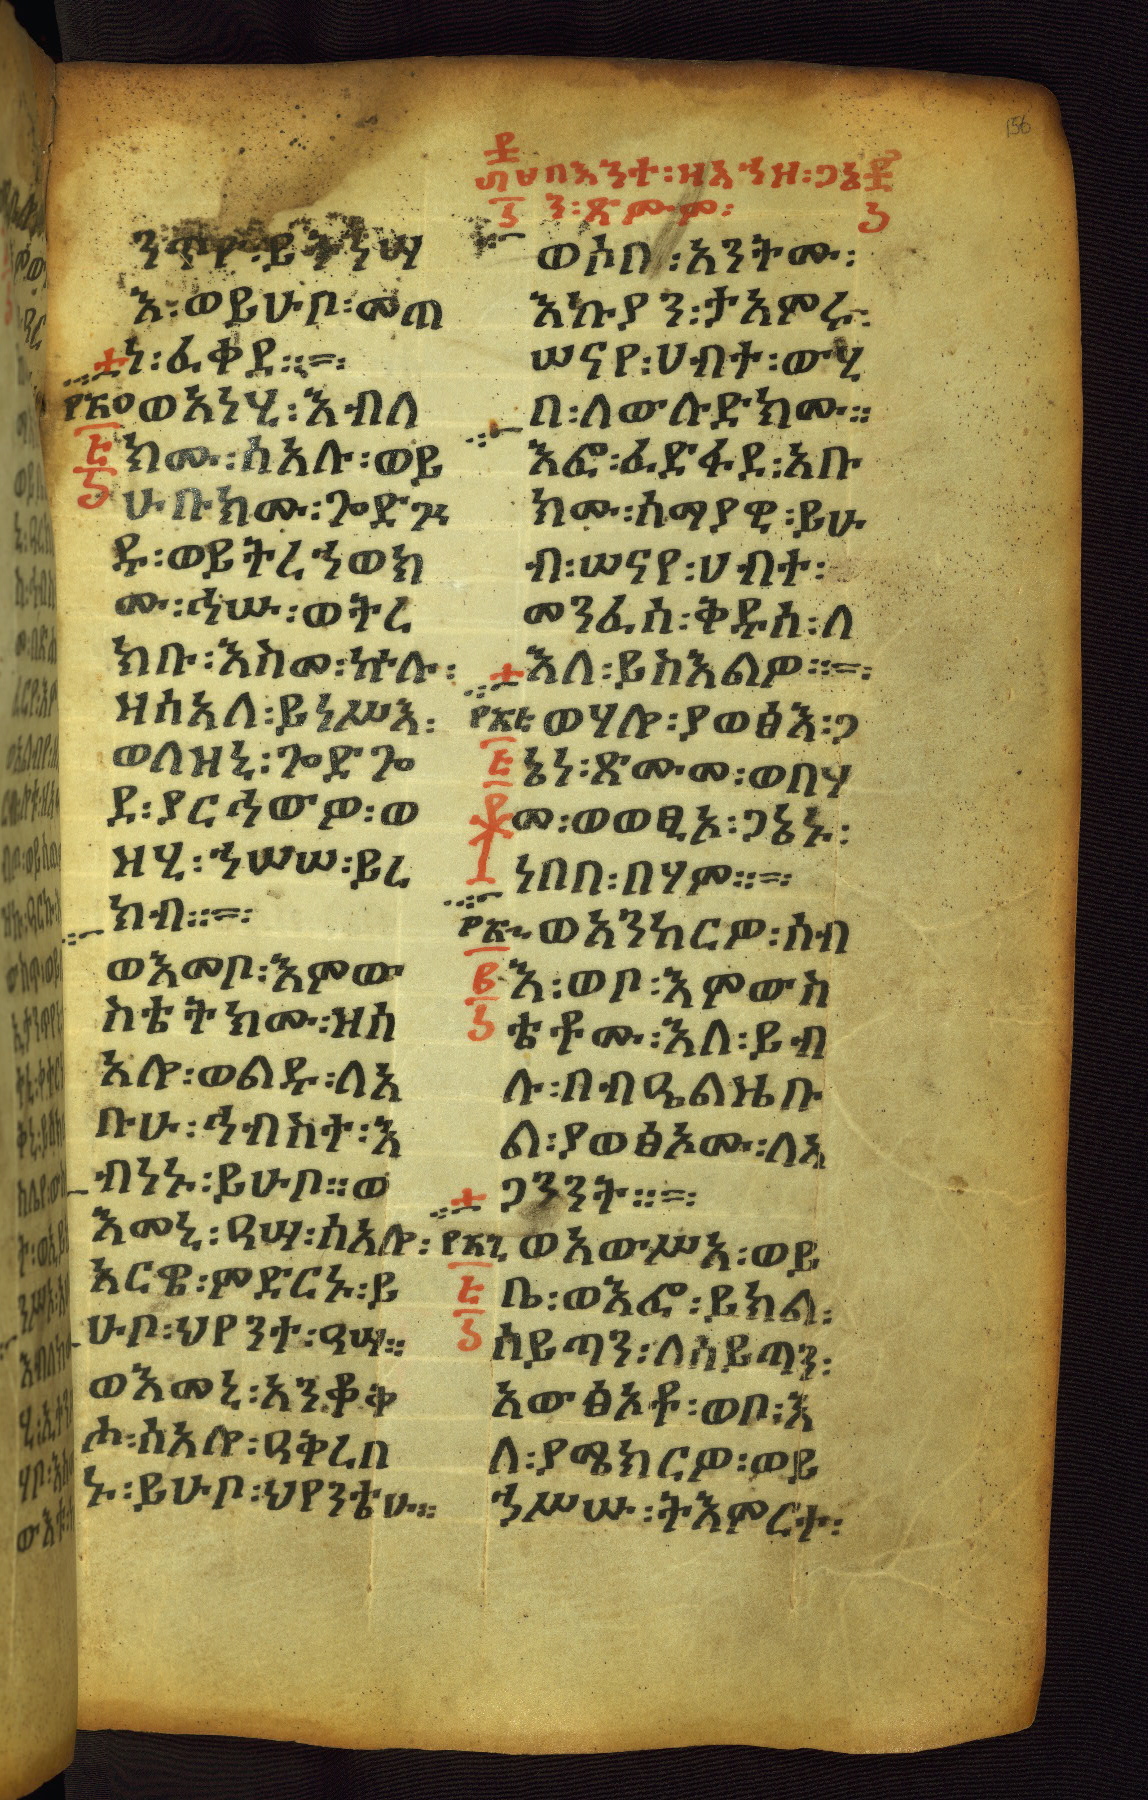 በእንተ፡ዘአኀዘ፡ጋኔ
ን፡ጽሙም፡
ይትነሣ
እ፡ወይሁቦ፡መጠ
ነ፡ፈቀደ።
ወአነሂ፡እብለ
ክሙ፡ሰአሉ፡ወይ
ሁቡክሙ፡ጐድጕ
ዱ፡ወይትረኀወክ
ሙ፡ኅሡ፡ወትረ
ክቡ፡እስመ፡ኵሉ፡
ዘሰአለ፡ይነሥእ፡
ወለዝኒ፡ጐድጐ
ደ፡ያርኅውዎ፡ወ
ዘሂ፡ኀሠሠ፡ይረ
ክብ።
ወእመቦ፡እምው
ስቴትክሙ፡ዝሰ
አሎ፡ወልዱ፡ለአ
ቡሁ፡ኅብስተ፡እ
ብነኑ፡ይሁቦ።ወ
እመኒ፡ዓሣ፡ሰአሎ፡
አርዌ፡ምድርኑ፡ይ
ሁቦ፡ህየንተ፡ዓሣ።
ወእመኒ፡አንቆቅ
ሖ፡ሰአሎ፡ዓቅረበ
ኑ፡ይሁቦ፡ህየንቴሁ።
ወሶበ፡አንትሙ፡
እኩያን፡ታአምሩ፡
ሠናየ፡ሀብተ፡ውሂ
በ፡ለውሉድክሙ።
እፎ፡ፈድፋደ፡አቡ
ክሙ፡ሰማያዊ፡ይሁ
ብ፡ሠናየ፡ሀብተ፡
መንፈሰ፡ቅዱሰ፡ለ
እለ፡ይስእልዎ።
ወሃሎ፡ያወፅእ፡ጋ
ኔነ፡ጽሙመ፡ወበሃ
መ፡ወወፂኦ፡ጋኔኑ፡
ነበበ፡በሃም።
ወአንከርዎ፡ሰብ
እ፡ወቦ፡እምውስ
ቴቶሙ፡እለ፡ይብ
ሉ፡በብዔልዜቡ
ል፡ያወፅኦሙ፡ለአ
ጋንንት።
ወአውሥአ፡ወይ
ቤ፡ወእፎ፡ይክል፡
ሰይጣን፡ለሰይጣን፡
አውፅኦቶ፡ወቦ፡እ
ለ፡ያሜክርዎ፡ወይ
ኀሥሡ፡ትእምርተ፡
156